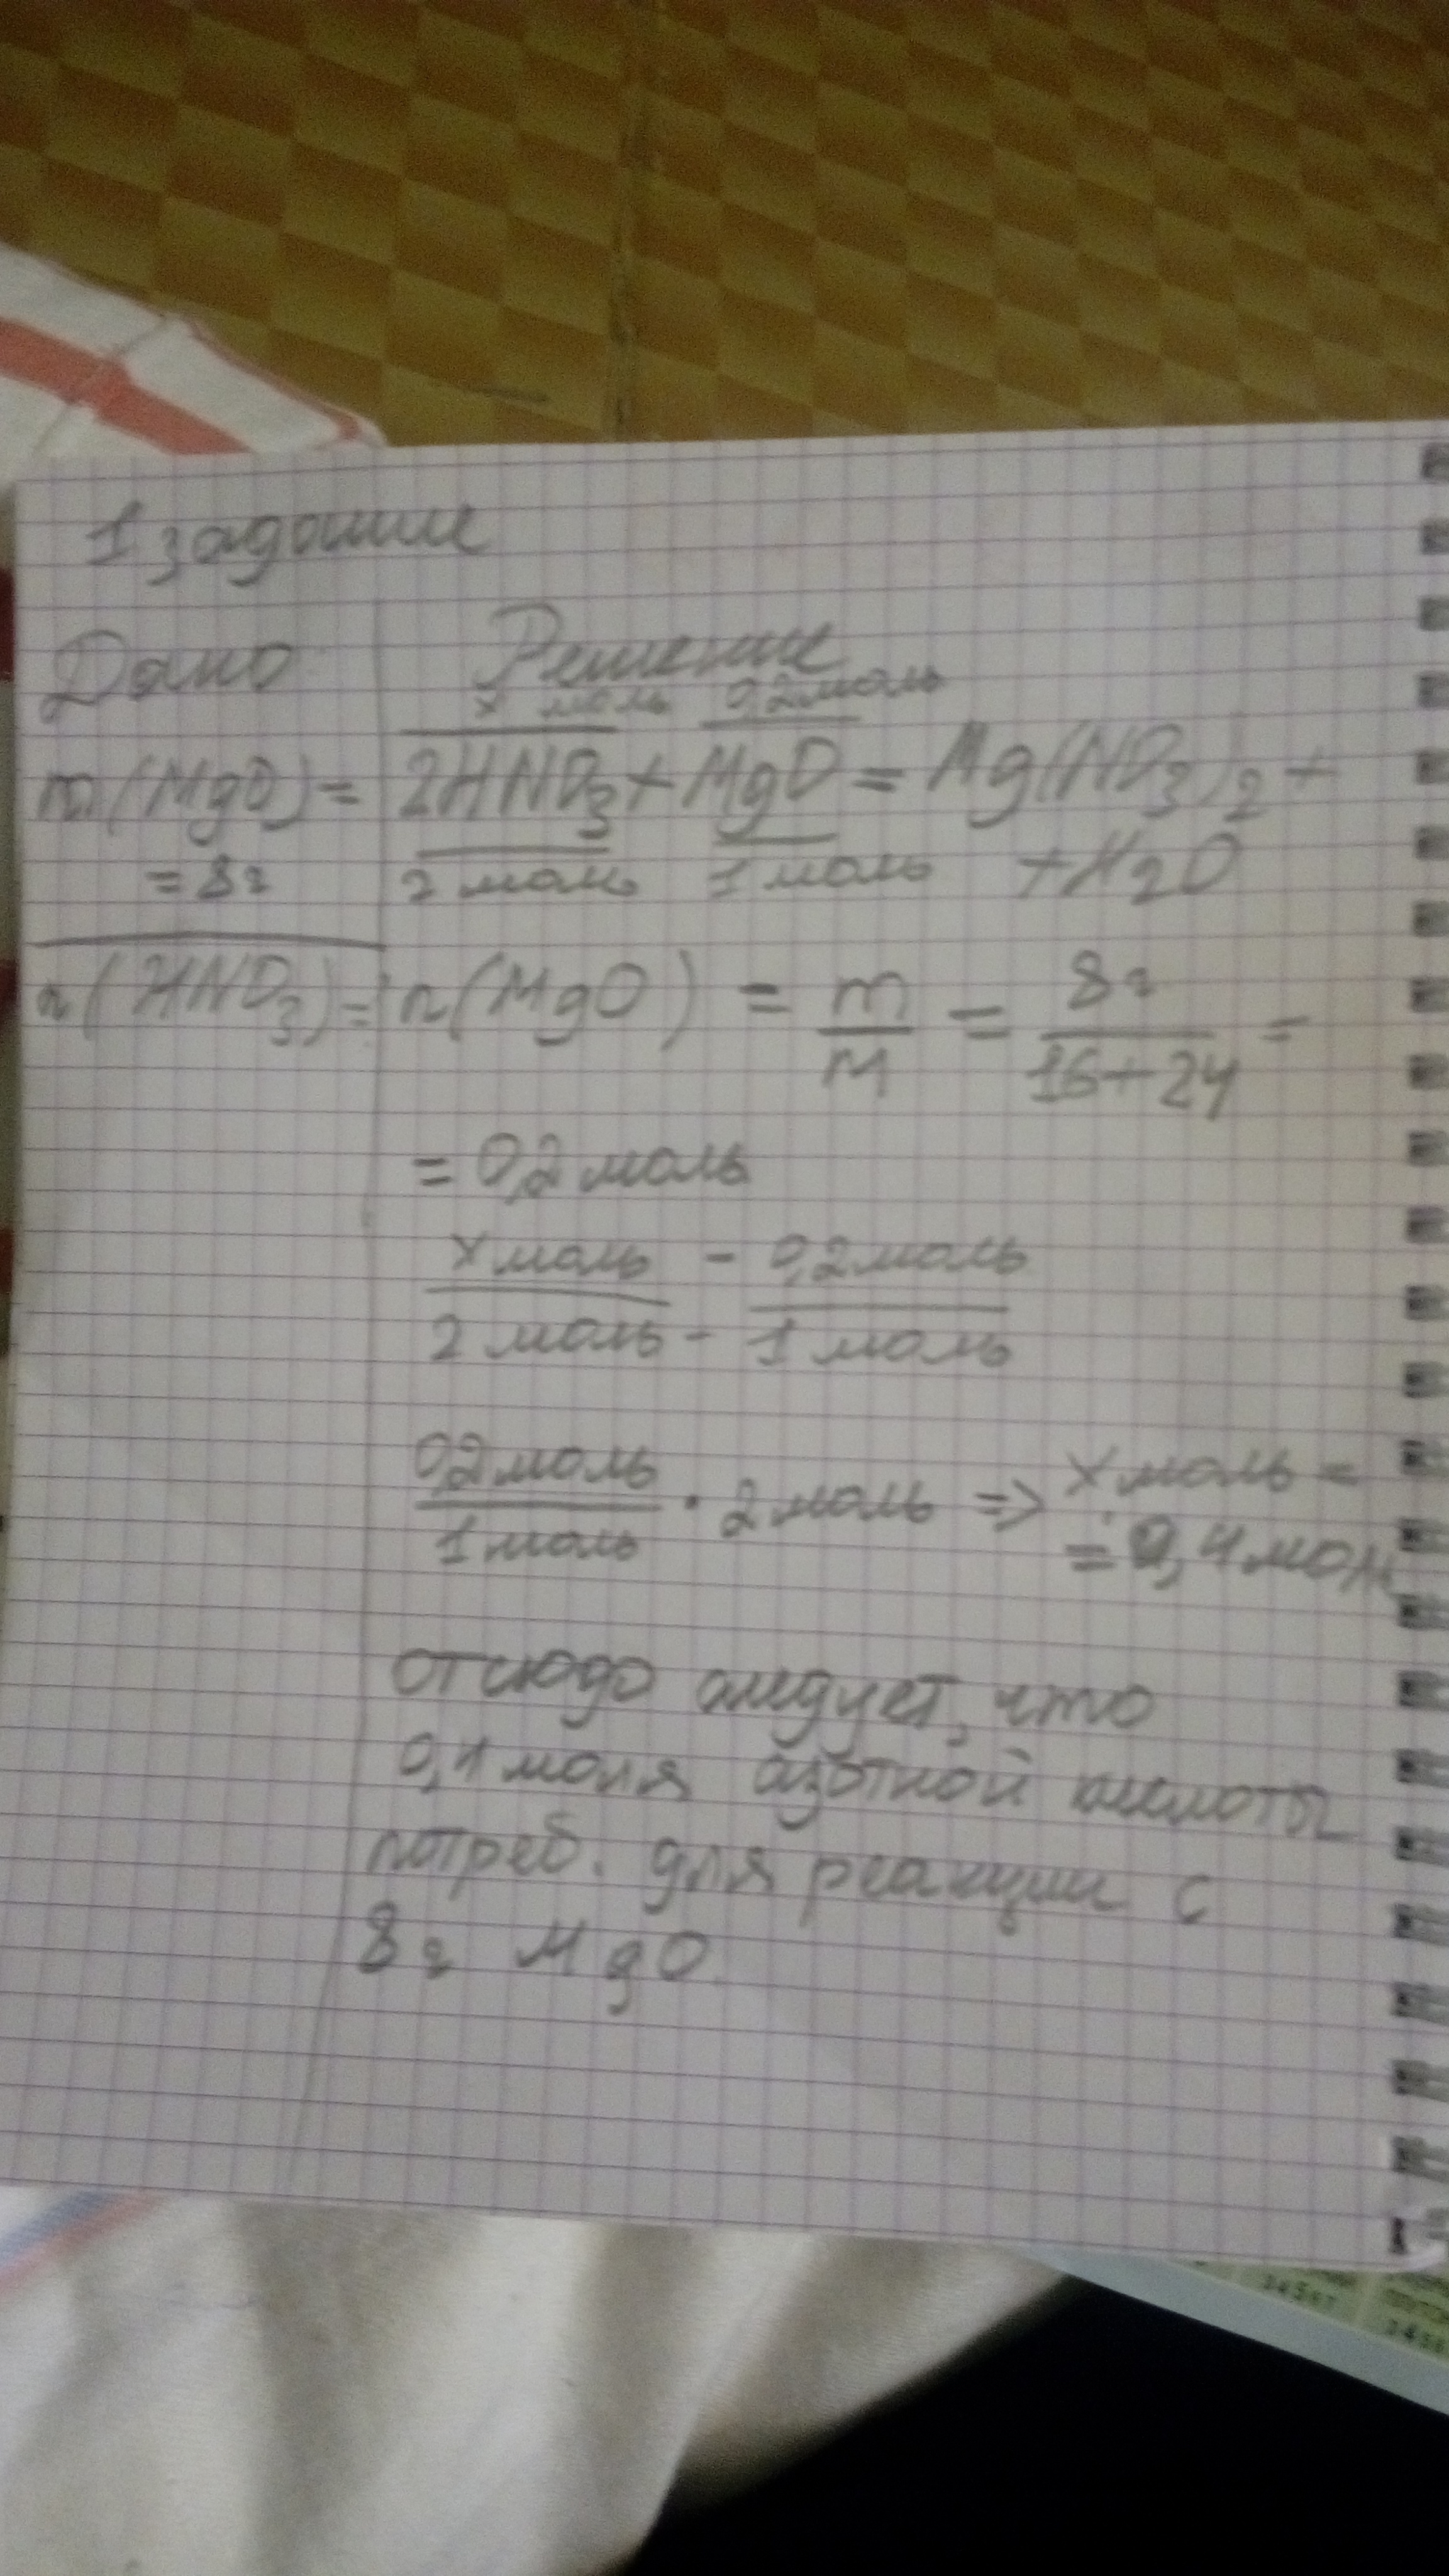 1 задание
Дано
Решение
x моль 0,2 моль
m(MgO)=
2HNO3+MgO=Mg(NO3)2+
=8г
2 моль 1 моль +H2O
n(HNO3)=
n(MgO) = m/M = 8г/16+24 =
= 0,2 моль
x моль - 0,2 моль
2 моль - 1 моль
0,2 моль/1 моль · 2 моль => x моль =
= 0,4 мол
отсюдо следует, что
0,4 моля азотной кислоты
потреб. для реакции с
8г MgO